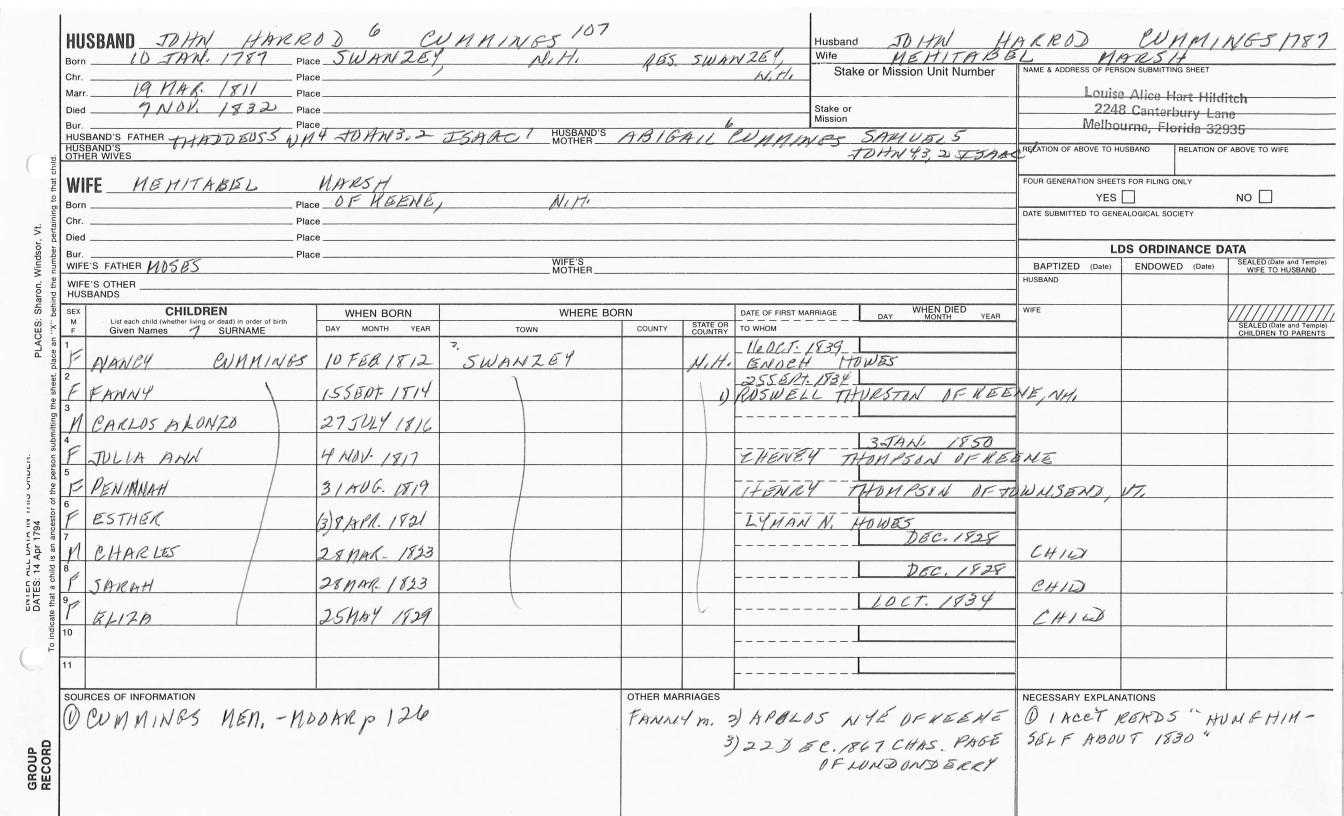 HUSBAND JOHN HARROD 6 CUMMINGS 107
Born 10 JAN. 1787 Place SWANZEY, N.H. RES. SWANZEY, N.H.
Chr. Place
Marr. 19 MAR. 1811 Place
Died 7 NOV. 1832 Place
Bur. Place
HUSBAND'S FATHER THADDEUS5 WM4 JOHN3,2 ISAAC1 HUSBAND'S MOTHER ABIGAIL 6 CUMMINGS SAMUEL5
JOHN4,3,2 ISAAC1
HUSBAND'S OTHER WIVES
Husband JOHN HARROD CUMMINGS 1787
Wife MEHITABEL MARSH
Stake or Mission Unit Number
Stake or Mission
NAME & ADDRESS OF PERSON SUBMITTING SHEET
Louise Alice Hart Hilditch
2248 Canterbury Lane
Melbourne, Florida 32935
RELATION OF ABOVE TO HUSBAND RELATION OF ABOVE TO WIFE
FOUR GENERATION SHEETS FOR FILING ONLY
YES NO
DATE SUBMITTED TO GENEALOGICAL SOCIETY
WIFE MEHITABEL MARSH
Born Place OF KEENE, N.H.
Chr. Place
Died Place
Bur. Place
WIFE'S FATHER MOSES WIFE'S MOTHER
WIFE'S OTHER HUSBANDS
LDS ORDINANCE DATA
BAPTIZED (Date) ENDOWED (Date) SEALED (Date and Temple) WIFE TO HUSBAND
HUSBAND
WIFE
SEALED (Date and Temple) CHILDREN TO PARENTS
SEX M F CHILDREN WHEN BORN WHERE BORN DATE OF FIRST MARRIAGE WHEN DIED
List each child (whether living or dead) in order of birth
Given Names 7 SURNAME DAY MONTH YEAR TOWN COUNTY STATE OR COUNTRY TO WHOM DAY MONTH YEAR
1 16 OCT. 1839
F NANCY CUMMINGS 10 FEB 1812 ?. SWANZEY N.H. ENOCH HOWES
2 25 SEPT. 1834
F FANNY 15 SEPT. 1814 1) ROSWELL THURSTON OF KEENE, NH.
3
M CARLOS ALONZO 27 JULY 1816
4 3 JAN. 1850
F JULIA ANN 4 NOV. 1817 CHENEY THOMPSON OF KEENE
5
F PENINNAH 31 AUG. 1819 HENRY THOMPSON OF TOWNSEND, VT.
6
F ESTHER (3)8 APR. 1821 LYMAN N. HOWES
7 DEC. 1828
M CHARLES 28 MAR. 1823 CHILD
8 DEC. 1828
F SARAH 28 MAR. 1823 CHILD
9 1 OCT. 1834
F ELIZA 25 MAY 1829 CHILD
10
11
SOURCES OF INFORMATION
① CUMMINGS MEM. - MOOAR p 126
OTHER MARRIAGES
FANNY m. 2) APOLOS NYE OF KEENE
3) 22 DEC. 1867 CHAS. PAGE
OF LONDONDERRY
NECESSARY EXPLANATIONS
① 1 ACCT READS "HUNG HIM-
SELF ABOUT 1830"
PLACES: Sharon, Windsor, Vt.
DATES: 14 Apr 1794
To indicate that a child is an ancestor of the person submitting the sheet, place an "X" behind the number pertaining to that child.
GROUP RECORD